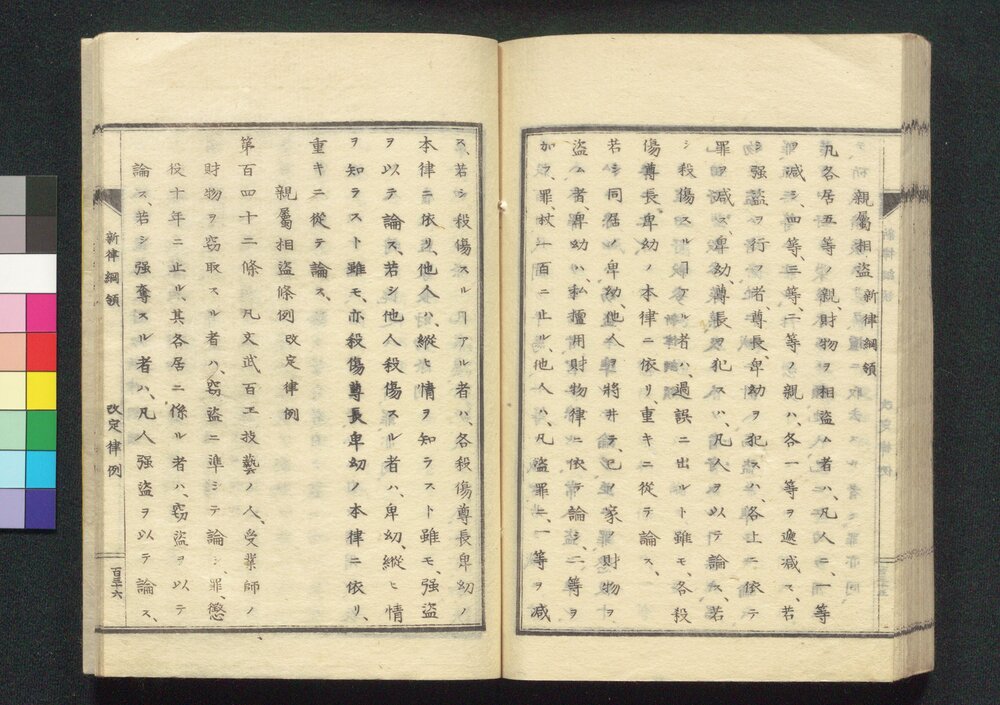 親屬相盜 新律綱領
凡各居五等ノ親、財物ヲ相盜ム者ハ、凡人ニ、一等
ヲ減シ、四等、三等、二等ノ親ハ、各一等ヲ遞減ス、若
シ强盜ヲ行フ者、尊長、卑幼ヲ犯スハ、各上ニ依テ
罪ヲ減ス、卑幼、尊長ヲ犯スハ、凡人ヲ以テ論ス、若
シ殺傷スルヿアル者ハ、過誤ニ出ルト雖モ、各殺
傷尊長卑幼ノ本律ニ依リ、重キニ從テ論ス、
若シ同居ノ卑幼、他人ヲ將井テ、己ノ家ノ財物ヲ
盜ム者、卑幼ハ、私擅用財物律ニ依テ論シ、二等ヲ
加フ、罪、杖一百ニ止ル、他人ハ、凡盜罪ニ、一等ヲ減
ス、若シ殺傷スルヿアル者ハ、各殺傷尊長卑幼ノ
本律ニ依リ、他人ハ、縱ヒ情ヲ知ラスト雖モ、强盜
ヲ以テ論ス、若シ他人殺傷スル者ハ、卑幼、縱ヒ情
ヲ知ラスト雖モ、亦殺傷尊長卑幼ノ本律ニ依リ、
重キニ從テ論ス、
親屬相盜條例 改定律例
第百四十二條 凡文武百工技藝ノ人、受業師ノ
財物ヲ窃取スル者ハ、窃盜ニ準シテ論シ、罪、懲
役十年ニ止ル、其各居ニ係ル者ハ、窃盜ヲ以テ
論ス、若シ强奪スル者ハ、凡人强盜ヲ以テ論ス、
新律綱領 改定律例 百三十六